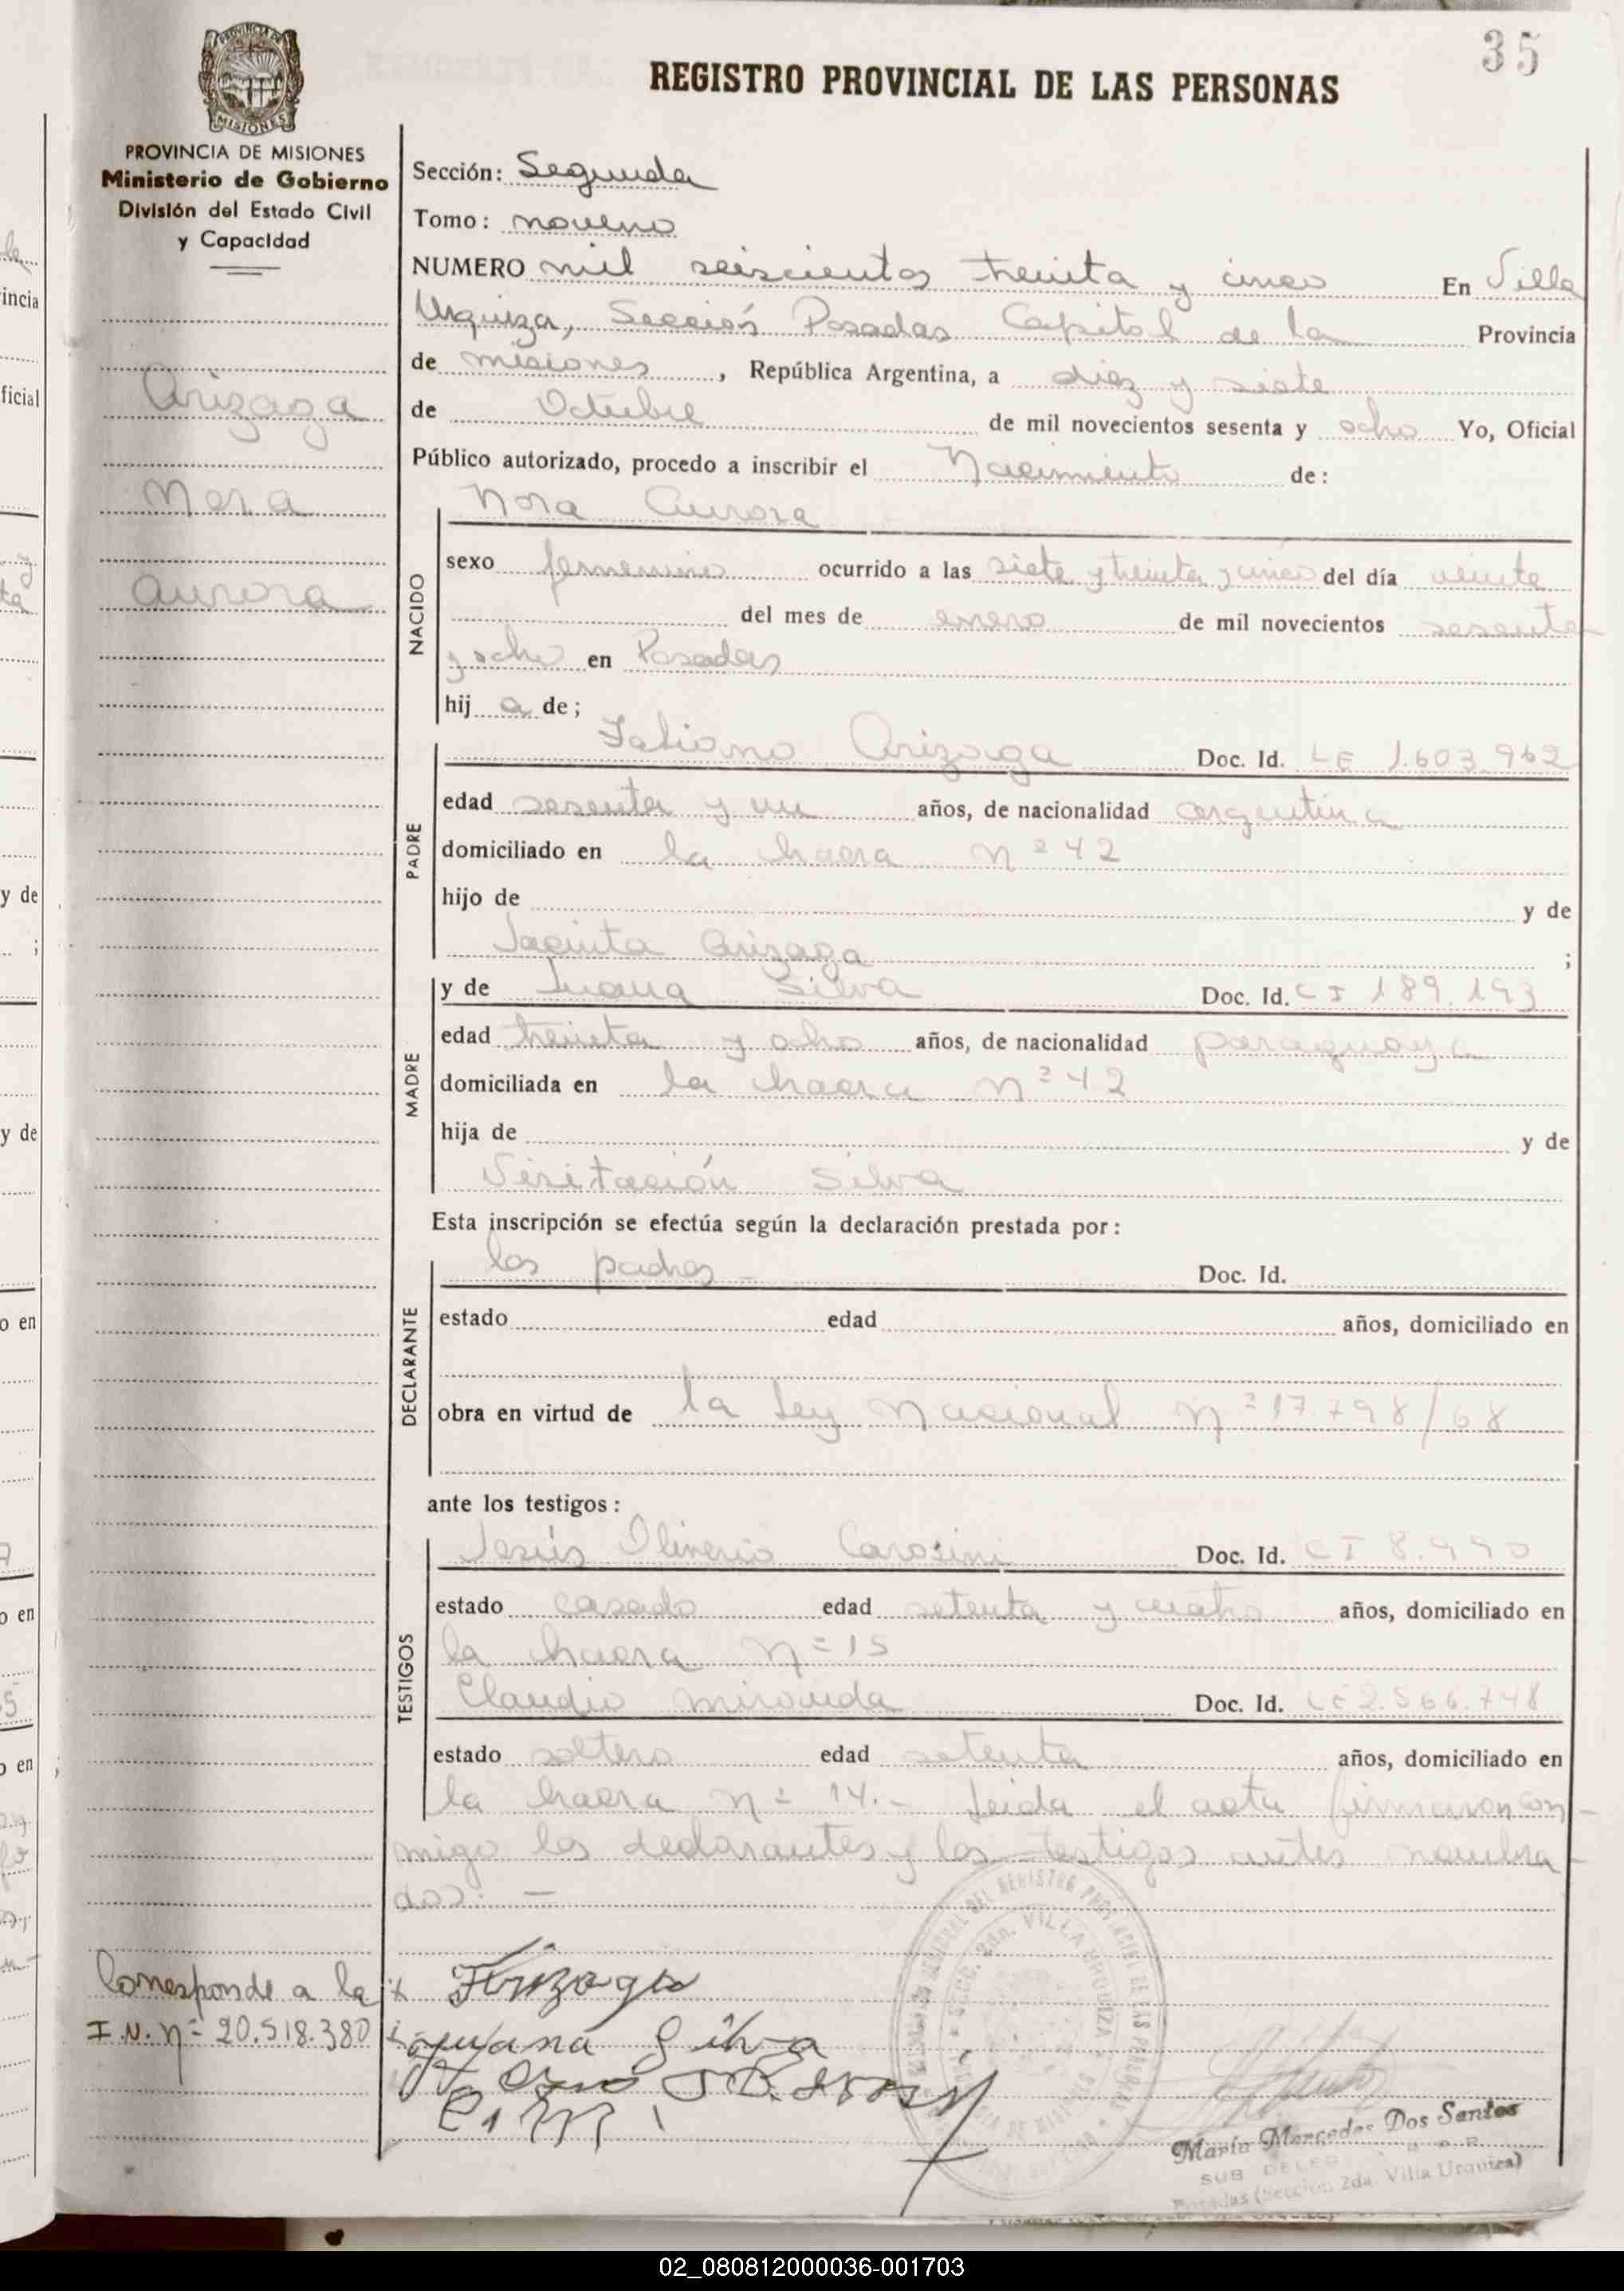 35
REGISTRO PROVINCIAL DE LAS PERSONAS
PROVINCIA DE
MISIONES
PROVINCIA DE MISIONES
Ministerio de Gobierno
División del Estado Civil
y Capacidad
Arizaga
Nora
Aurora
Sección: Segunda
Tomo: noveno
NUMERO mil seiscientos treinta y cinco En Villa
Urquiza, Sección Posadas Capital de la Provincia
de misiones, República Argentina, a diez y siete
de Octubre de mil novecientos sesenta y ocho Yo, Oficial
Público autorizado, procedo a inscribir el Nacimiento de:
Nora Aurora
NACIDO
sexo femenino ocurrido a las siete y treinta y cinco del día veinte
del mes de enero de mil novecientos sesenta
y ocho en Posadas
hija de;
PADRE
Fabiano Arizaga Doc. Id. LE 1.603.962
edad sesenta y un años, de nacionalidad argentina
domiciliado en la chacra nº 42
hijo de y de
Jacinta Arizaga ;
MADRE
y de Juana Silva Doc. Id. CI 189.193
edad treinta y ocho años, de nacionalidad paraguaya
domiciliada en la chacra nº 42
hija de y de
Visitación Silva
Esta inscripción se efectúa según la declaración prestada por:
DECLARANTE
los padres - Doc. Id.
estado edad años, domiciliado en
obra en virtud de la Ley Nacional nº 17.798/68
ante los testigos:
TESTIGOS
Jesús Oliverio Carosini Doc. Id. CI 8.990
estado casado edad setenta y cuatro años, domiciliado en
la chacra nº 15
Claudio miranda Doc. Id. LE 2.566.748
estado soltero edad setenta años, domiciliado en
la chacra nº 14.- Leida el acta firmaron con-
migo los declarantes y los testigos antes nombra-
dos.-
Corresponde a la
I.N. nº 20.518.380
x FArizaga
x Juana Silva
SECC. 2da. VILLA URQUIZA
DEL REGISTRO PROVINCIAL DE LAS PERSONAS
María Mercedes Dos Santos
SUB DELEG
Posadas (Sección 2da. Villa Urquiza)
02_080812000036-001703